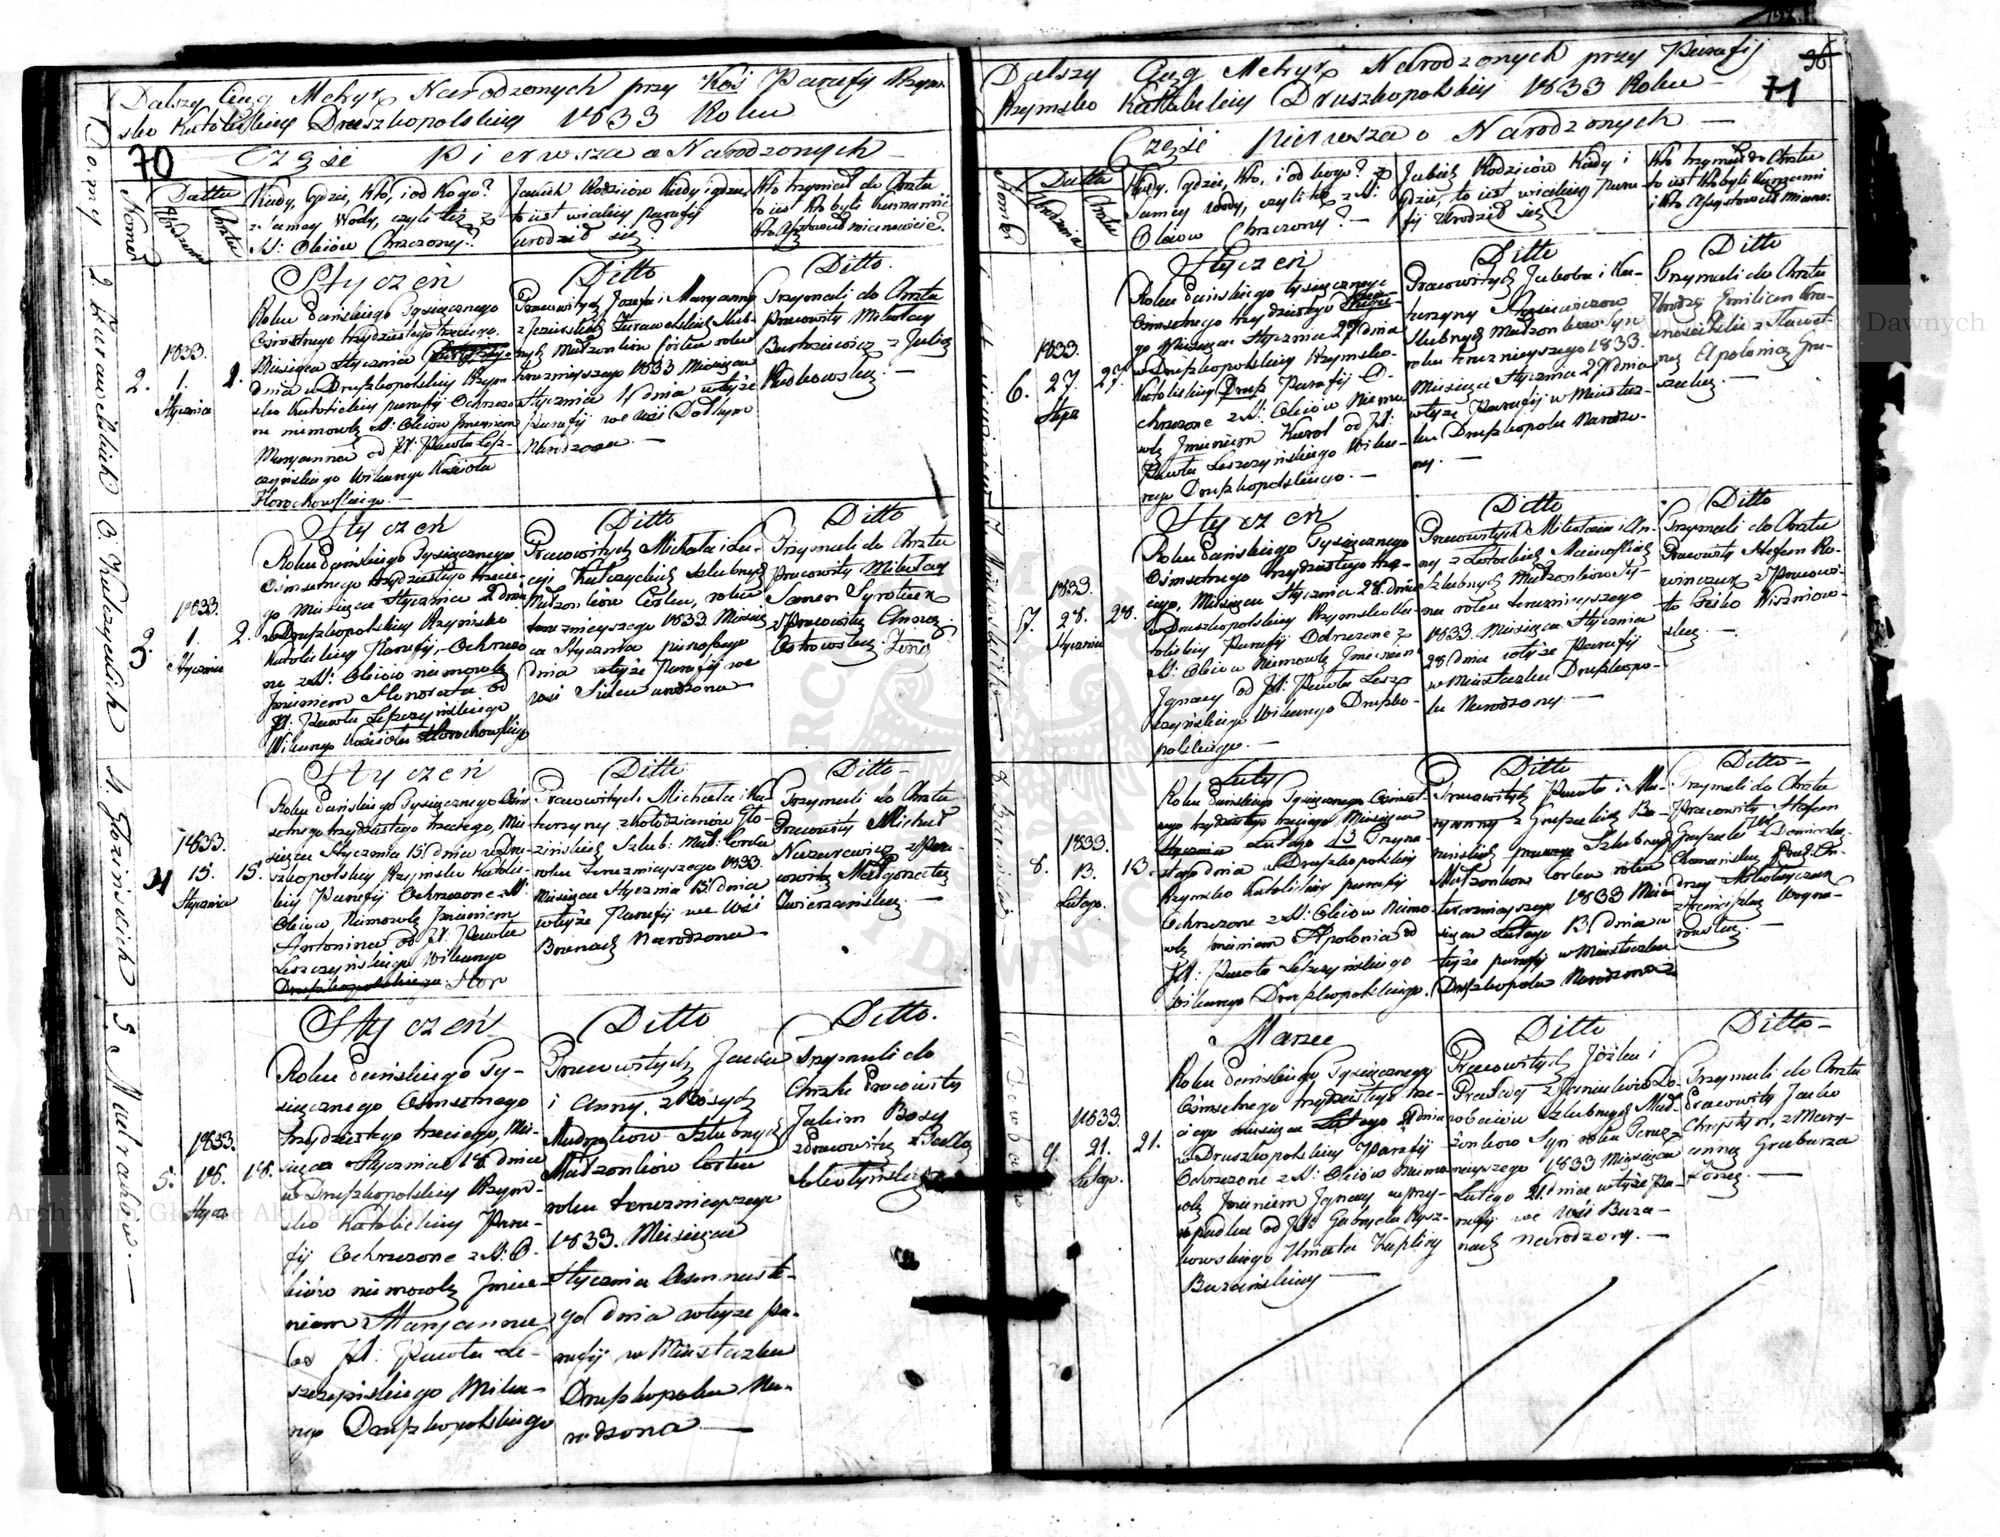 Dalszy Ciąg Metryk Narodzonych przy Koś Parafij Rzym-
sko Katolickiey Druszkopolskiey 1833 Roku
70
Część Pierwsza o Narodzonych
Domy 2. Żurawelskich 3. Kulczyckich 4. Głozińskich 5. Mudraków.
Numer
Datta
Urodzenia
Chrztu
Kiedy, Gdzie, Kto, i od Kogo?
z samey Wody, czyli też z
SS: Oleiów Chrzczony?
Jakich Rodziców Kiedy i gdzie,
to iest w iakiey parafij
Urodził się?
Kto trzymał do Chrztu
to iest Kto byli Kumami
Kto Assystował mianowicie?
Styczeń
2.
1833.
1.
Stycznia
1.
Roku Pańskiego Tysiącznego
Osmsetnego trzydziestego trzeciego
Miesiąca Stycznia
dnia w Druszkopolskiey Rzym-
sko Katolickiey parafij Ochrzczo-
ne niemowle SS: Oleiów Jmieniem
Maryanna od JX: Pawła Lesz-
czyńskiego Wikarego Kościoła
Horochowskiego.—
Ditto
Pracowitych Jozefa i Maryanny
z Jezierskich Żurawelskich Szlub-
nych Małżonków Córka roku
teraznieyszego 1833 Miesiąca
Stycznia 1 dnia wteyże
Parafij we Wsi
Narodzona.—
Ditto.
Trzymali do Chrztu
Pracowity Mikołay
Bartosiewicz z Julią
Rudkowską.—
Styczeń
3.
1833.
1.
Stycznia
2.
Roku Pańskiego Tysiącznego
Osmsetnego trzydziestego trzecie-
go Miesiąca Stycznia 2 dnia
w Druszkopolskiey Rzymsko
Katolickiey Parafij, Ochrzczo-
ne z SS: Oleiów niemowle
Jmieniem Honorata od
JX: Pawła Leszczyńskiego
Wikarego Kościoła Horochowskiego
Ditto
Pracowitych Michała i Łu-
cyi Kulczyckich Szlubnych
Małżonków Córka, roku
teraznieyszego 1833 Miesią-
ca Stycznia pierwszego
dnia wteyże Parafij we
wsi urodzona
Ditto
Trzymali do Chrztu
Pracowity Mikołay
Syrotiuk
z Pracowitą Anną
Ostrowską Żoną
Styczeń
4
1833.
15.
Stycznia
15.
Roku Pańskiego Tysiącznego Ośm
setnego trzydziestego trzeciego, Mie
siąca Stycznia 15 dnia w Dru
szkopolskiey Rzymsko Katolic-
kiey Parafij Ochrzczone z SS:
Oleiów Niemowle Jmieniem
Antonina od JX: Pawła
Leszczyńskiego Wikarego
Druszkopolskiego Hor
Ditto
Pracowitych Michała i Ka-
tarzyny z Kołodzianów Gło-
zińskich Szlub: Mał: Córka
roku teraznieyszego 1833.
Miesiąca Stycznia 15 dnia
wteyże Parafij we Wsi
Branach Narodzona
Ditto—
Trzymali do Chrztu
Pracowity Michał
Nazarewicz z Pra-
cowitą Małgorzatą
Zwierzańską.—
Styczeń
5.
1833.
18.
Stycz:
18.
Roku Pańskiego Ty-
siącznego Osmsetnego
trzydziestego trzeciego, Mie-
siąca Stycznia 18 dnia
w Druszkopolskiey Rzym-
sko Katolickiey Para-
fij Ochrzczone z SS: O-
leiów niemowle Jmie-
niem Maryanna
od JX: Pawła Le-
szczyńskiego Wika-
rego Druszkopolskiego
Ditto
Pracowitych Jacka
i Anny z Bosych
Mudraków Szlubnych
Małżonków Córka
roku teraznieyszego
1833. Miesiąca
Stycznia Osmnaste-
go dnia wteyże pa-
rafij w Miasteczku
Druszkopolu Na-
rodzona.—
Ditto.
Trzymali do
Chrztu Pracowity
Jakim Bosy
z Pracowitą
Dalszy Ciąg Metryk Narodzonych przy Parafij
Rzymsko Katolickiey Druszkopolskiey 1833 Roku
36
71
Część Pierwsza o Narodzonych—
Numer
Datta
Urodzenia
Chrztu
Kiedy, gdzie, Kto, i od kogo? z
Samey wody, czyli też z SS:
Oleiów Chrzczony?—
Jakich Rodziców Kiedy i
gdzie, to iest w iakiey Para-
fij Urodził się?
Kto trzymał do Chrztu
to iest Kto byli Kumami
i Kto Assystował miano:
Styczeń
6.
1833.
27.
Stycz
27.
Roku Pańskiego tysiącznego
Osmsetnego trzydziestego trzecie-
go Miesiąca Stycznia 27 dnia
w Druszkopolskiey Rzymsko-
Katolickiey Parafij O-
chrzczone z SS: Oleiów Niemo-
wle Jmieniem Karol od JX:
Pawła Leszczyńskiego Wika-
rego Druszkopolskiego.—
Ditto
Pracowitych Jakoba i Ka-
tarzyny
Szlubnych Małżonków Syn
roku teraznieyszego 1833.
Miesiąca Stycznia 27 dnia
wteyże Parafij w Miastecz-
ku Druszkopolu Narodzo-
ny.—
Ditto
Trzymali do Chrztu
Emilian
z Sławet-
ną Apolonią Gru-
szecką.—
Styczeń
7.
1833.
28.
Stycznia
28.
Roku Pańskiego Tysiącznego
Osmsetnego trzydziestego trze-
ciego, Miesiąca Stycznia 28 dnia
w Druszkopolskiey Rzymsko Ka-
tolickiey Parafij Ochrzczone z
SS: Oleiów Niemowle Jmieniem
Jgnacy od JX: Pawła Lesz-
czyńskiego Wikarego Druszko-
polskiego.—
Ditto
Pracowitych Mikołaia i An-
ny z
Szlubnych Małżonków Sy-
na roku teraznieyszego
1833. Miesiąca Stycznia
28 dnia wteyże Parafij
w Miasteczku Druszkopo-
lu Narodzony.—
Ditto
Trzymali do Chrztu
Pracowity Stefan Ro-
winczuk z Pracowi-
tą Wiszniow-
ską.—
Luty
8.
1833.
13.
Lutego
13.
Roku Pańskiego Tysiącznego Osmset-
nego trzydziestego trzeciego Miesiąca
Stycznia Lutego 13 Trzyna
stego dnia w Druszkopolskiey
Rzymsko Katolickiey parafij
Ochrzczone z SS: Oleiów Niemo-
wle Jmieniem Apolonia od
JX: Pawła Leszczyńskiego
Wikarego Druszkopolskiego.
Ditto
Pracowitych Pawła i Ma-
ryanny z Gruszeckich Ba-
nińskich prawego Szlubnych
Małżonków Córka roku
teraznieyszego 1833 Mie-
siąca Lutego 13 dnia w
teyże parafij w Miasteczku
Druszkopolu Narodzona
Ditto—
Trzymali do Chrztu
Pracowity Stefan
Gruszecki z Dominiką
Chomańską
drzey Mikołayczuk
z Franciszką Wogna-
rowską.—
Marzec
9.
1833.
21.
Lutego.
21.
Roku Pańskiego Tysiącznego
Osmsetnego trzydziestego trze-
ciego miesiąca Lutego 21 dnia
w Druszkopolskiey Parafij
Ochrzczone z SS: Oleiów Niemo-
wle Jmieniem Jgnacy w przy-
padku od JX: Gabryela Rysz-
kowskiego Kaplicy
Burańskiey—
Ditto
Pracowitych Józka i
Szlubnych Mał-
żonków Syn roku Teraz-
nieyszego 1833 Miesiąca
Lutego 21 dnia wteyże Pa-
rafij we Wsi Bura-
nach narodzony.—
Ditto—
Trzymali do Chrztu
Pracowity Jacko
Chrystyn, z Mary-
anną Grabarza
Żoną.—